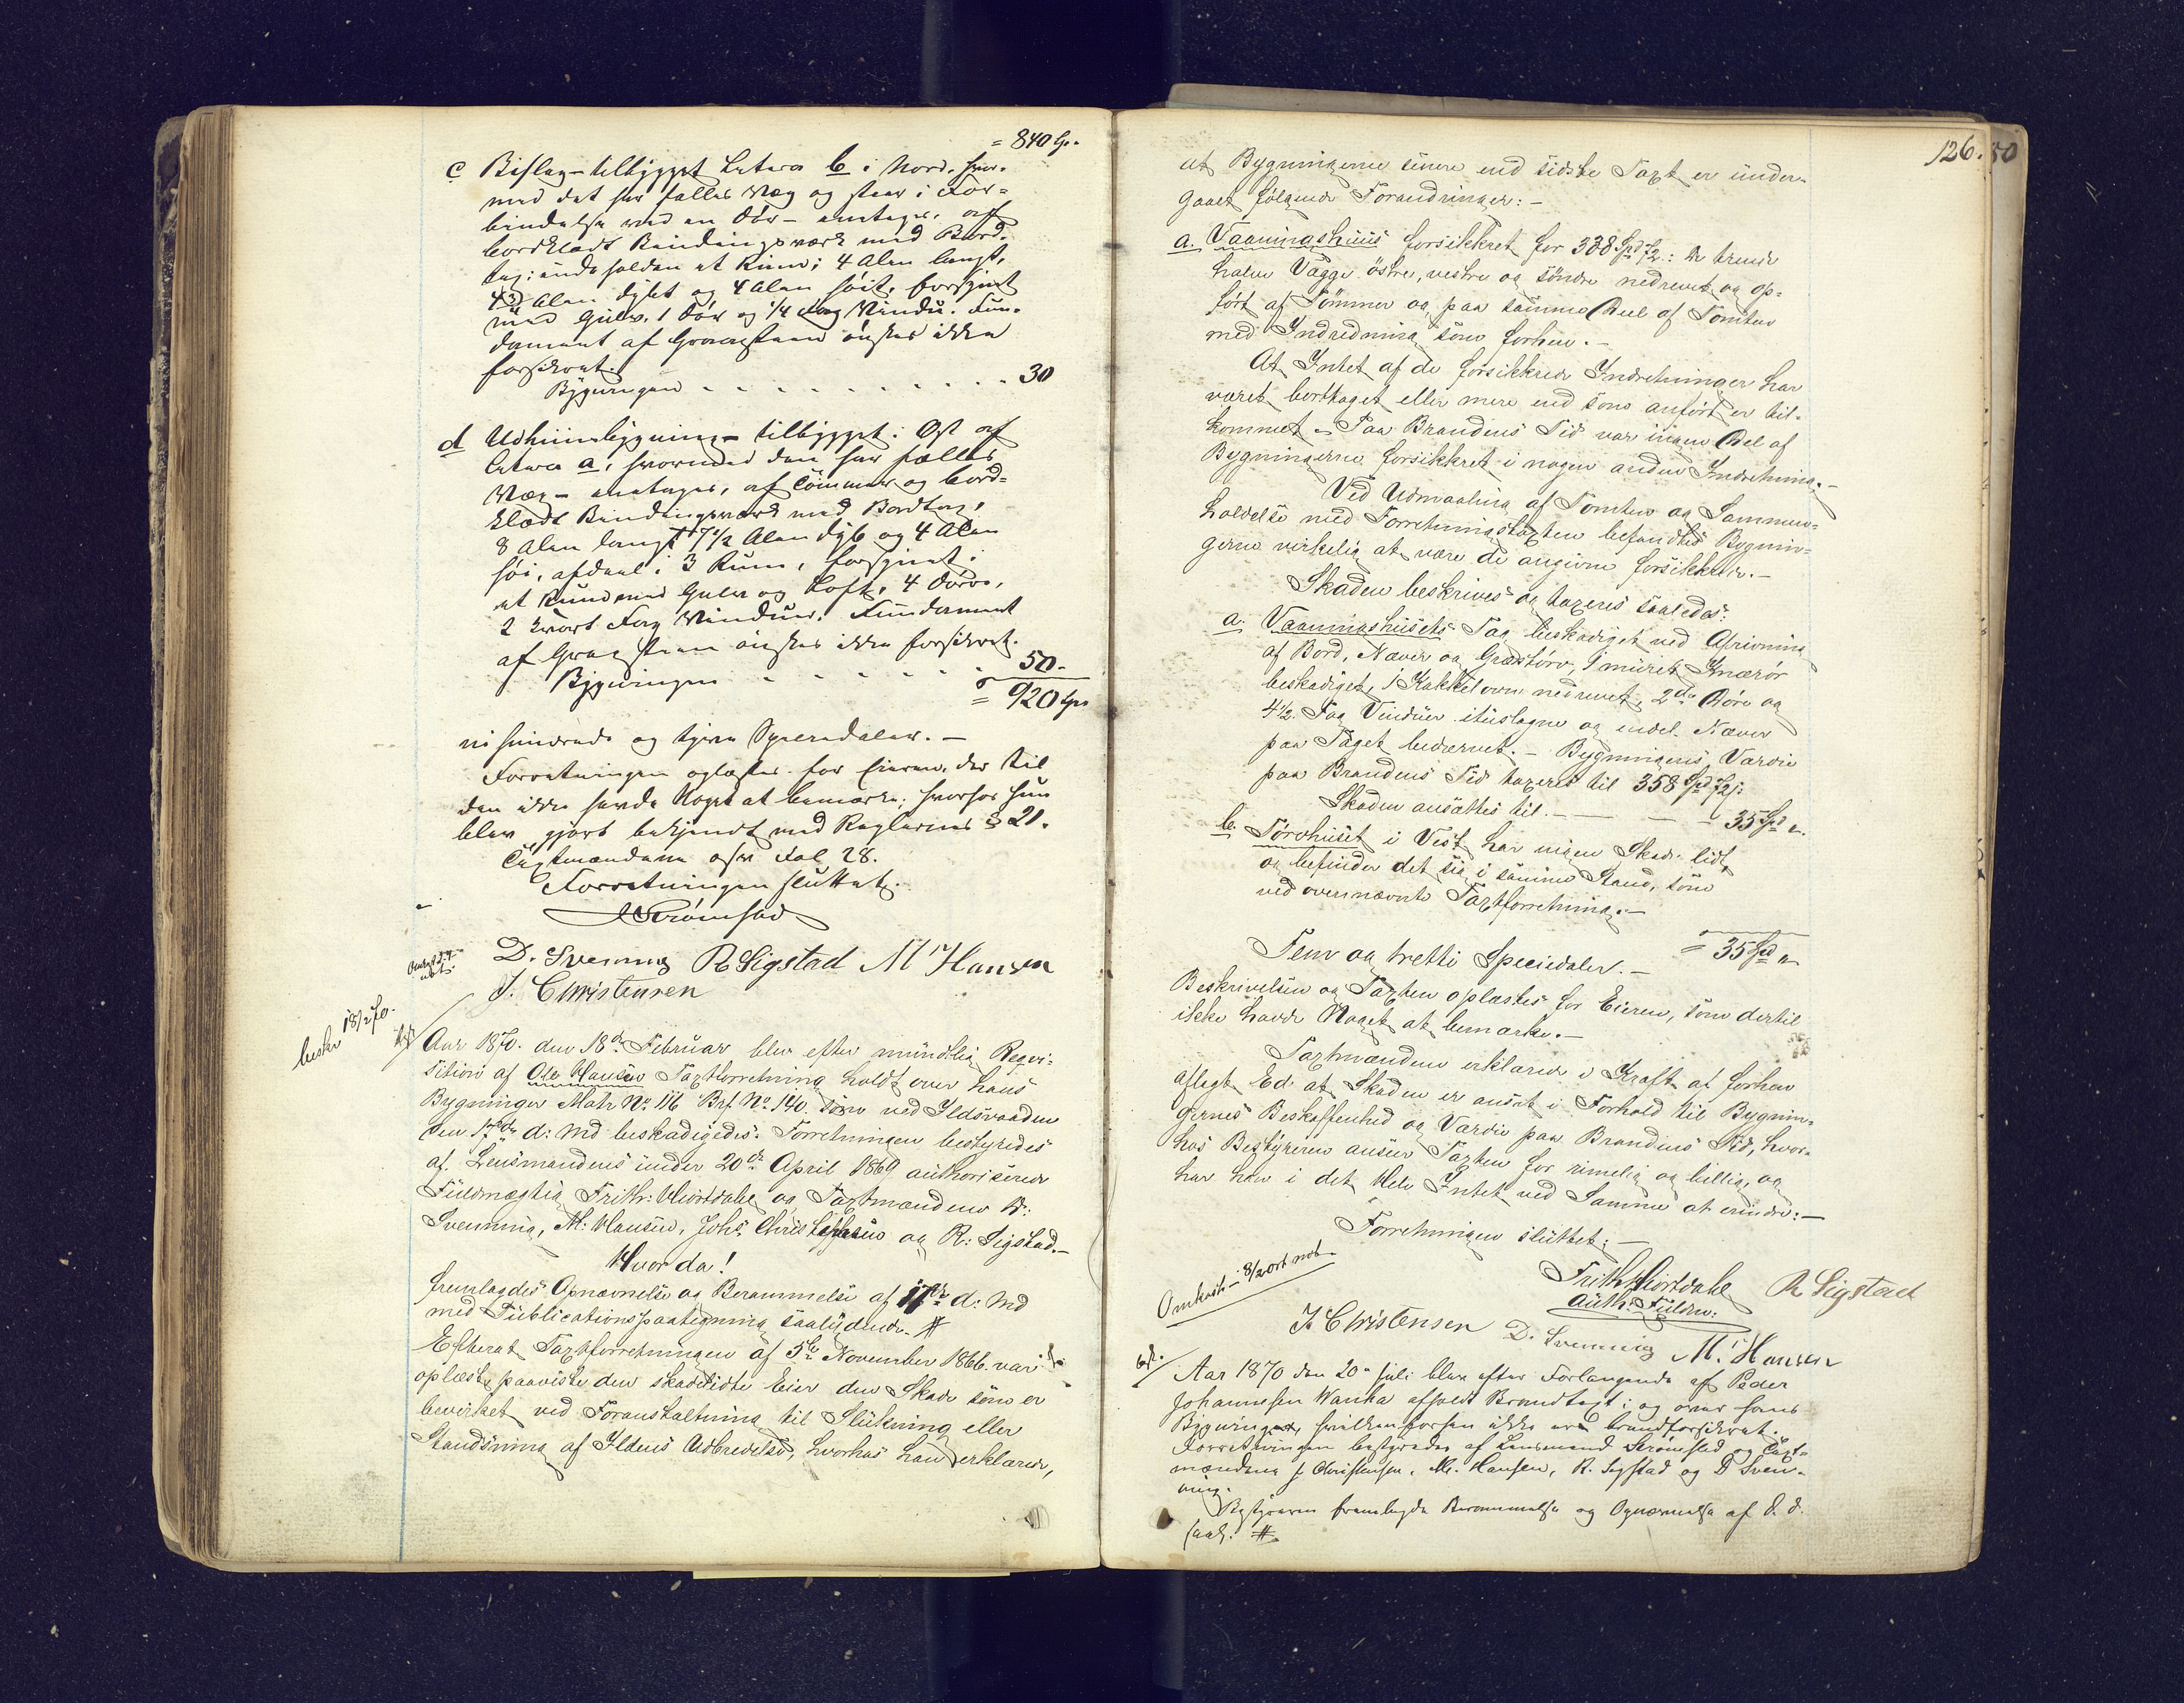 = 840 Sp.
c Bislag – tilbygget Litera b i Nord, hvor-
med det har fælles Væg og staar i For-
bindelse med en Dør – antages, af
bordklædt Bindingsværk med Bord-
tag; indeholder et Rum; 4 Alen langt,
4 Alen dybt og 4 Alen høit, forsynet
med Gulv, 1 Dør og 1/4 Fag Vindu. Fun-
dament af Graasteen ønskes ikke
forsikret.
Bygningen - - - - - - - - - - 30
d Udhuusbygning – tilbygget i Øst af
Litera a, hvormed den har fælles
Væg – antages, af Tømmer og bord-
klædt Bindingsværk med Bordtag,
8 Alen langt 7 1/2 Alen dyb og 4 Alen
høi, afdeelt i 3 Rum, forsynet i
et Rum med Gulv og Loft, 4 Døre,
2 Fag Vinduer. Fundament
af Graasteen ønskes ikke forsikret.
Bygningen - - - - - - 50 -
= 920 Sp
ni hundrede og tyve Speciedaler. –
Forretningen oplæstes for Eieren, der til
den ikke havde Noget at bemærke; hvorfor hun
blev gjort bekjendt med Reglernes § 21.
Taxtmændene Fol 28.
Forretningen sluttet.
Strømsted
D. Svenning R Sigstad M Hansen
J. Christensen
beskr 18/2 70.
Aar 1870. den 18de Februar blev efter mundtlig Reqvi-
sition af Ole Hansen Taxtforretning holdt over hans
Bygninger Matr No. 116 Brf. No. 140. som ved Ildsvaaden
den 17de d: Md beskadigedes. Forretningen bestyredes
af Lensmandens under 20de April 1869 authoriserede
Fuldmægtig Frith: Hiortdahl og Taxtmændene D:
Svenning, M: Hansen, Johs. Christensen og R: Sigstad. –
Hvor da!
fremlagdes Opnævnelse og Berammelse af 17de d: Md
med Publicationspaategning saalydende. #
Efterat Taxtforretningen af 5te November 1866. var
oplæst, paaviste den skadelidte Eier den Skade som er
bevirket ved Foranstaltning til Slukning eller
Standsning af Ildens Udbredelse, hvorhos han erklærede,
126. 50
at Bygningerne senere end sidste Taxt er under-
gaaet følgende Forandringer: –
a. Vaaningshuus forsikkret for 338 Spd. De trende
halve Vægge østre, vestre og søndre nedrevet og op-
ført af Tømmer og paa samme Deel af Tomten
med Indredning som forhen. –
At Intet af de forsikkrede Indretninger har
været borttaget eller mere end som anført er til-
kommet – Paa Brandens Tid var ingen Deel af
Bygningerne forsikkret i nogen anden Indretning. –
Ved Udmaaling af Tomten og Sammen-
holdelse med Forretningstaxten befandtes Bygnin-
gerne virkelig at være de angivne forsikkrede. –
Skaden beskrives og taxeres saaledes:
a. Vaaningshusets Tag beskadiget ved Afrivning
af Bord, Næver og Græstørv, 1 muret Knærør
beskadiget, 1 Kakkelovn nedrevet, 2de Døre og
4 1/2 Fag Vinduer ituslagne og endel Næver
paa Taget bedærvet. – Bygningens Værdie
paa Brandens Tid taxeres til 358 Spd
Skaden ansættes til - - - - 35 Spd
b. Tørvhuset i Vest har ingen Skade lidt,
og befinder det sig i samme Stand, som
ved ovennævnte Taxtforretning. –
= 35 Spd
Fem og tretti Speciedaler. –
Beskrivelsen og Taxten oplæstes for Eieren, som dertil
ikke havde Noget at bemærke. –
Taxtmændene erklærede i Kraft af forhen
aflagt Ed at Skaden er ansat i Forhold til Bygnin-
gernes Beskaffenhed og Værdie paa Brandens Tid, hvor-
hos Bestyreren anseer Taxten for rimelig og billig, og
har han i det Hele Intet ved Samme at erindre: –
Forretningen sluttet: –
Frith Hiortdahl R Sigstad
Auth: Fuldm:
J. Christensen D. Svenning M. Hansen
Aar 1870 den 20de Juli blev efter Forlangende af Peder
Johannesen Wanka afholdt Brandtaxt i og over hans
Bygninger, hvilken forhen ikke var brandforsikret.
Forretningen bestyredes af Lensmand Strømsted og Taxt-
mændene J Christensen, M. Hansen, R. Sigstad og D Sven-
ning.
Bestyreren fremlagde Berammelse og Opnævnelse af d. d.
saal: #